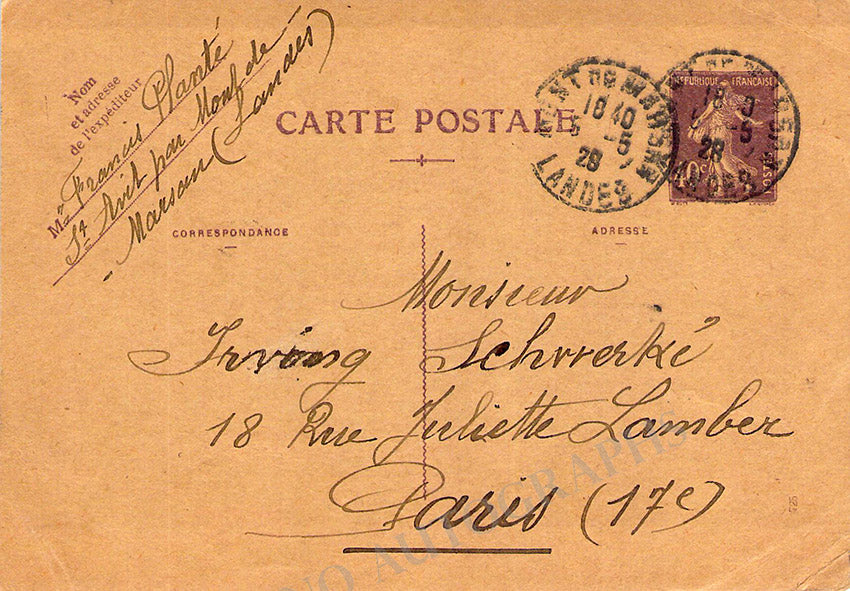 Nom
et adresse
de l'expéditeur
Mr Francis Planté
St Avit par Mont-de-
-Marsan (Landes)
CARTE POSTALE
MONT DE MARSAN
18 40
5 -5
28
LANDES
RÉPUBLIQUE FRANÇAISE
40c
POSTES
28
LANDES
CORRESPONDANCE
ADRESSE
Monsieur
Irving Schwerké
18 Rue Juliette Lamber
Paris (17e)
AUTOGRAPHS